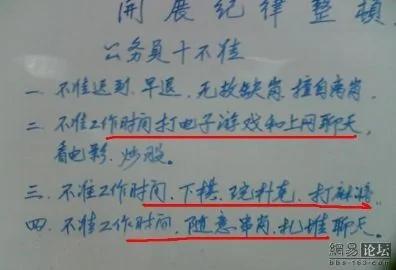 开展纪律整顿
公务员十不准
一、不准迟到、早退、无故缺岗、擅自离岗.
二、不准工作时间打电子游戏和上网聊天,
看电影、炒股。
三、不准工作时间、下棋、玩扑克、打麻将.
四、不准工作时间、随意串岗、扎堆聊天。
網易论坛
bbs·163·com